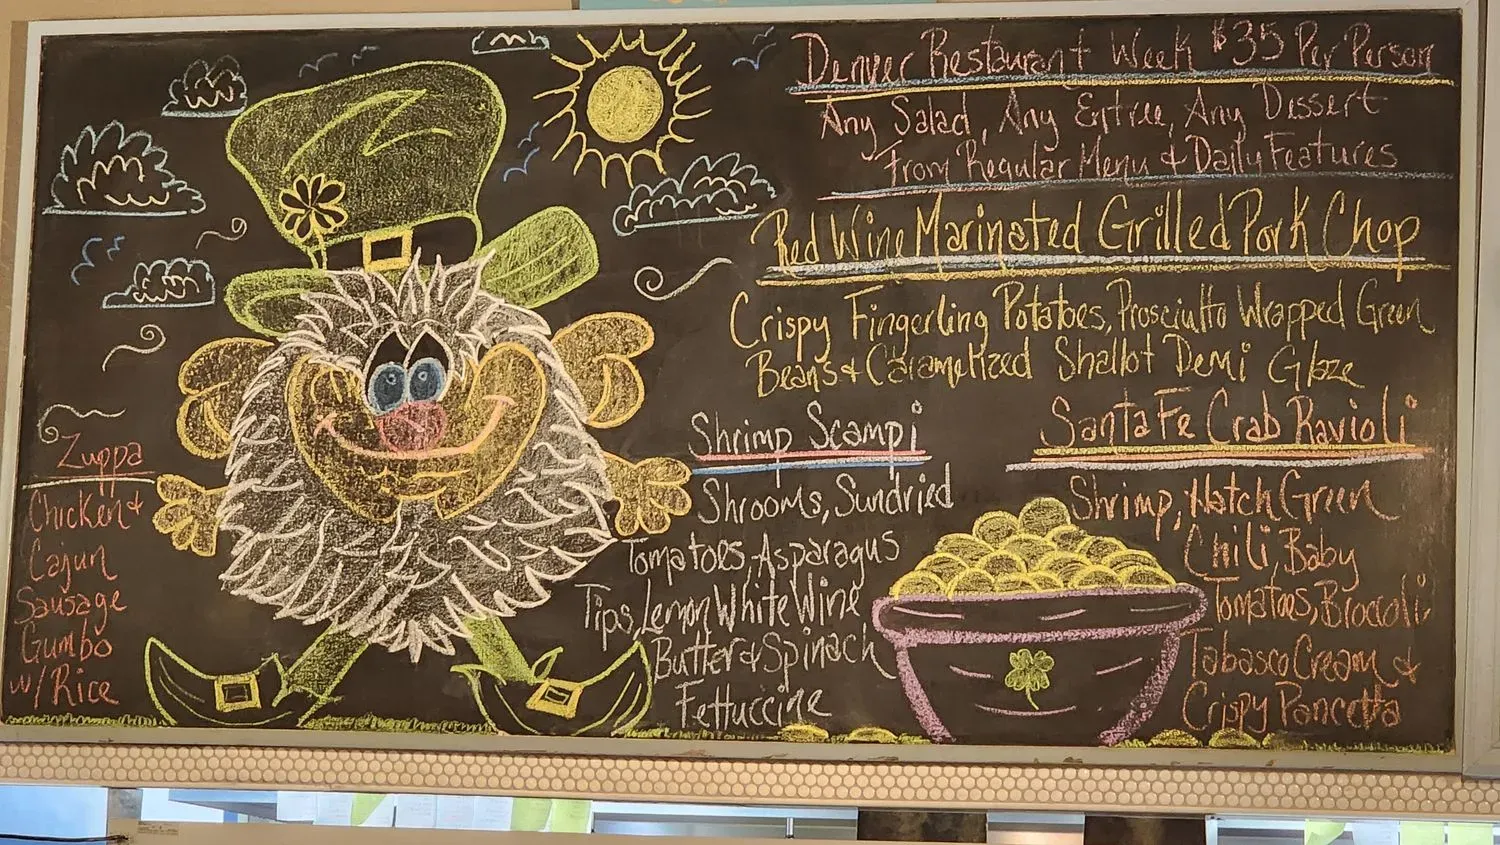 Denver Restaurant Week $35 Per Person
Any Salad, Any Entree, Any Dessert
From Regular Menu & Daily Features
Red Wine Marinated Grilled Pork Chop
Crispy Fingerling Potatoes, Prosciutto Wrapped Green
Beans & Caramelized Shallot Demi Glaze
Zuppa
Chicken &
Cajun
Sausage
Gumbo
w/ Rice
Shrimp Scampi
Shrooms, Sundried
Tomatoes, Asparagus
Tips, Lemon White Wine
Butter & Spinach
Fettuccine
Santa Fe Crab Ravioli
Shrimp, Hatch Green
Chili, Baby
Tomatoes, Broccoli
Tabasco Cream &
Crispy Pancetta